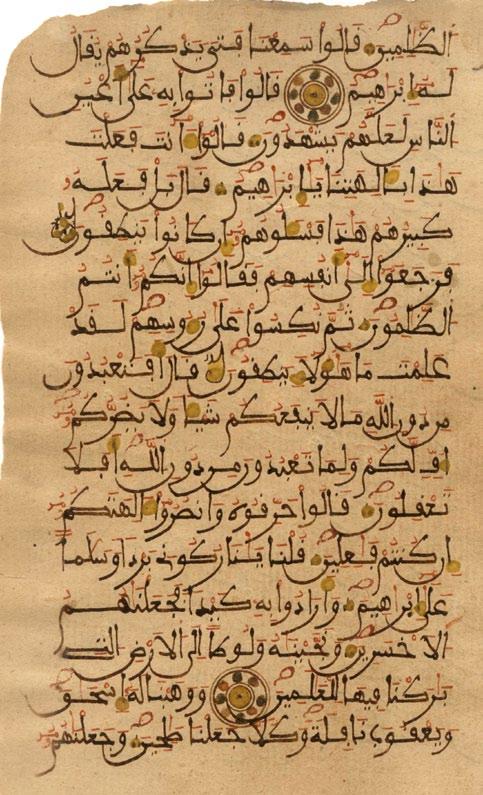 الظلمين قالوا سمعنا فتى يذكرهم يقال
له إبرهيم قالوا فاتوا به على أعين
الناس لعلهم يشهدون قالوا أنت فعلت
هذا بالهتنا يابرهيم قال بل فعله
كبيرهم هذا فسلوهم إن كانوا ينطقون
فرجعوا إلى أنفسهم فقالوا إنكم أنتم
الظلمون ثم نكسوا على روسهم لقد
علمت ما هولاء ينطقون قال أفتعبدون
من دون الله ما لا ينفعكم شيا ولا يضركم
أف لكم ولما تعبدون من دون الله أفلا
تعقلون قالوا حرقوه وانصروا الهتكم
إن كنتم فعلين قلنا ينار كوني بردا وسلما
على إبرهيم وأرادوا به كيدا فجعلنهم
الأخسرين ونجينه ولوطا إلى الأرض التي
بركنا فيها للعلمين ووهبنا له إسحق
ويعقوب نافلة وكلا جعلنا صلحين وجعلنهم